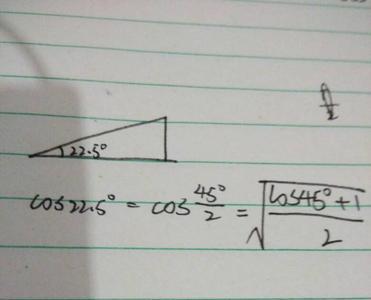 A/2
22.5°
cos22.5° = cos 45°/2 = √((cos45°+1)/2)